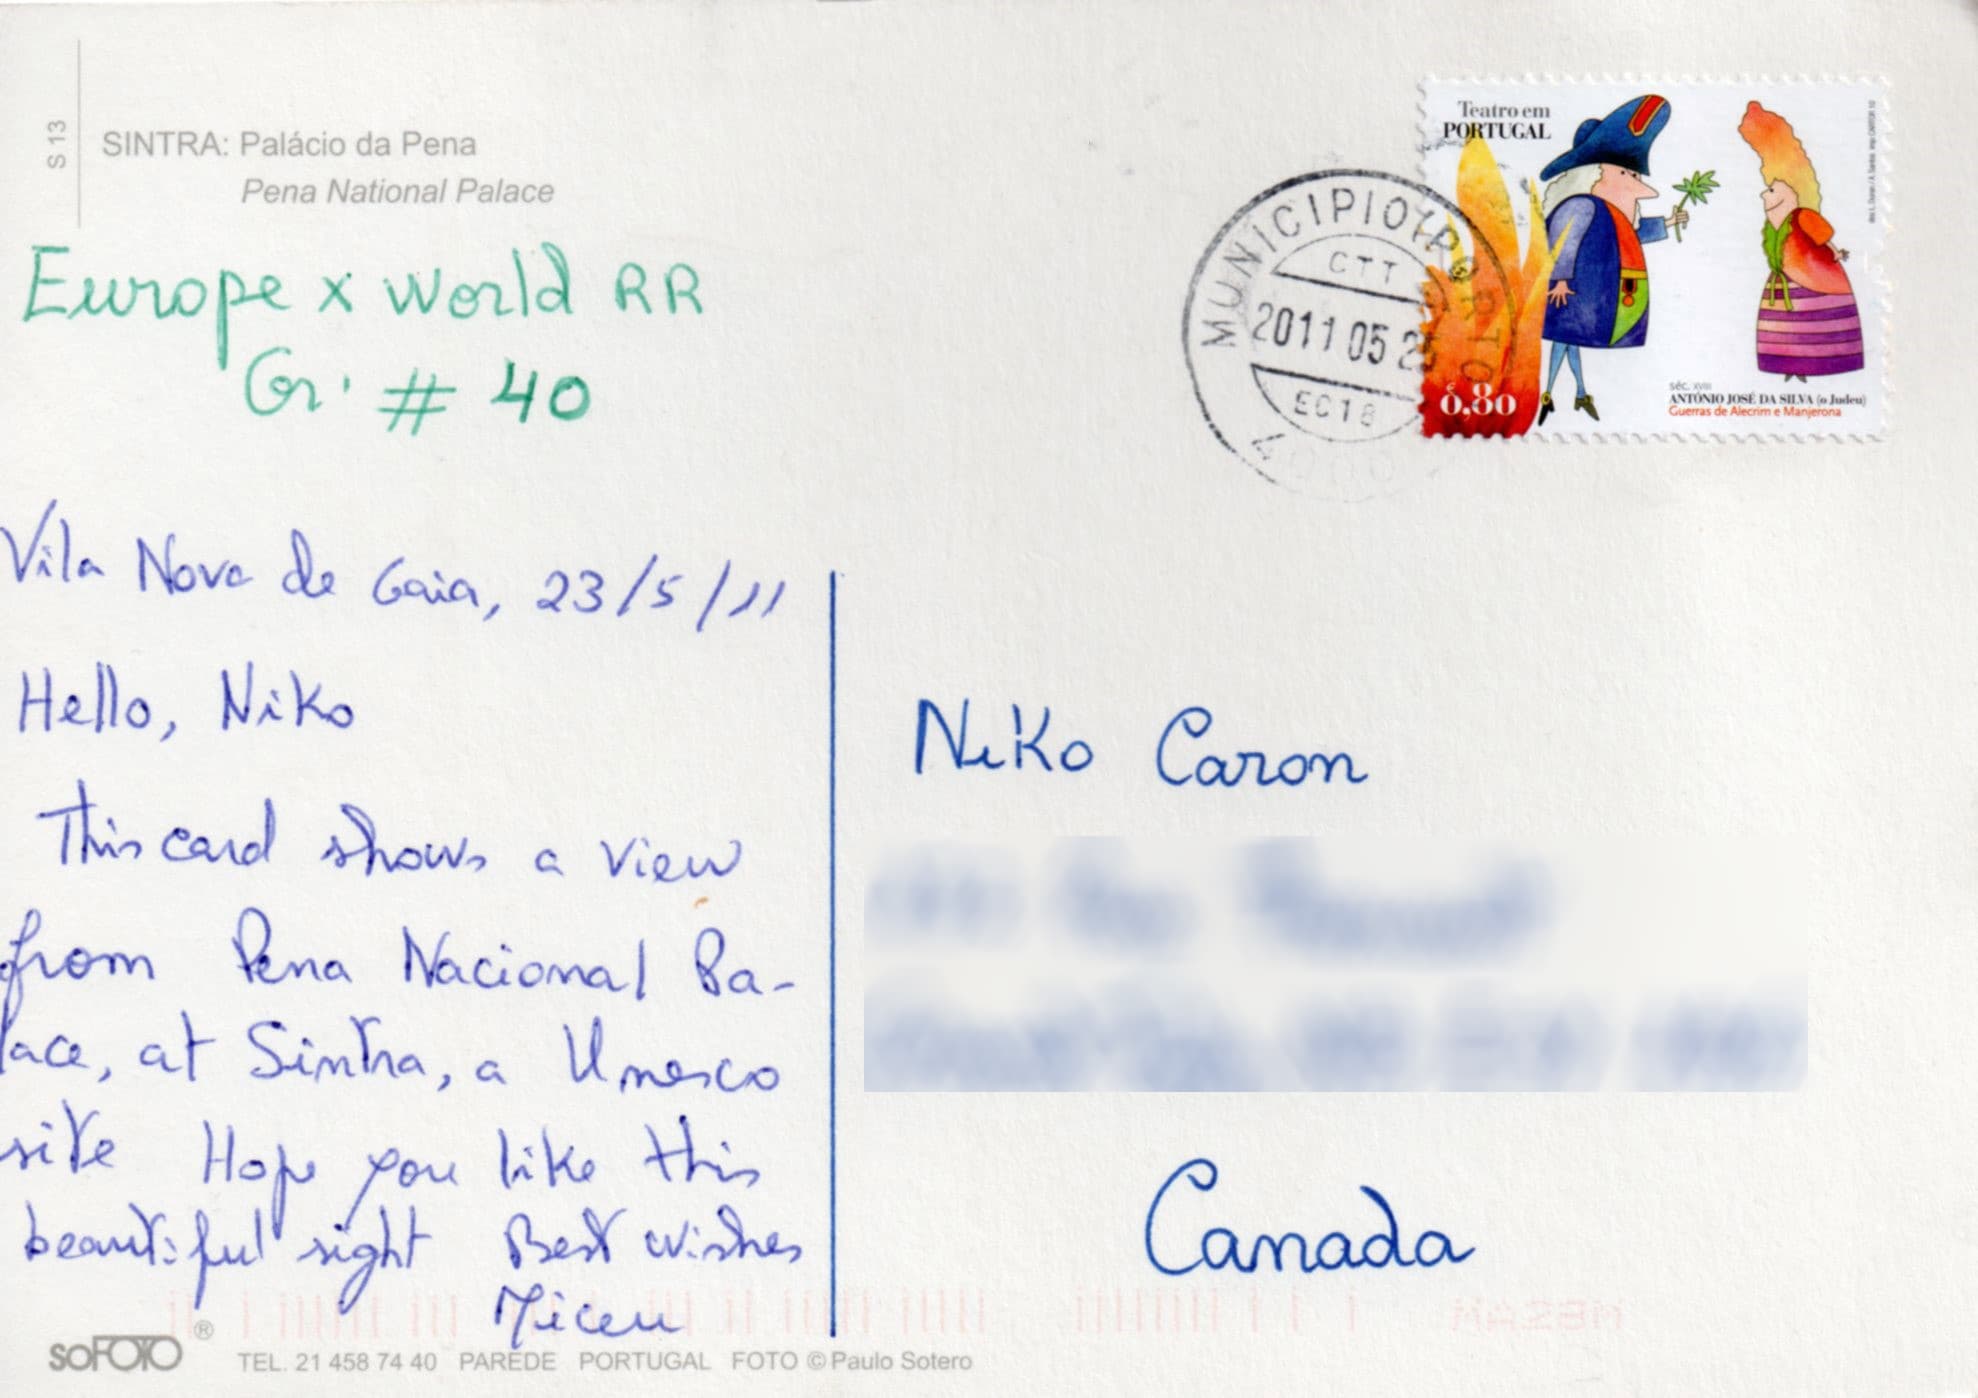 S 13
SINTRA: Palácio da Pena
Pena National Palace
Europe x World RR
Gr. # 40
Vila Nova de Gaia, 23/5/11
Hello, Niko
This card shows a view
from Pena Nacional Pa-
lace, at Sintra, a Unesco
site Hope you like this
beautiful sight Best wishes
soFOTO ®
TEL. 21 458 74 40 PAREDE PORTUGAL FOTO © Paulo Sotero
Teatro em
PORTUGAL
€
0,80
séc. XVIII
ANTÓNIO JOSÉ DA SILVA (o Judeu)
Guerras de Alecrim e Manjerona
MUNICIPIO (PORTO)
CTT
2011 05
EC18
4000
Niko Caron
Canada